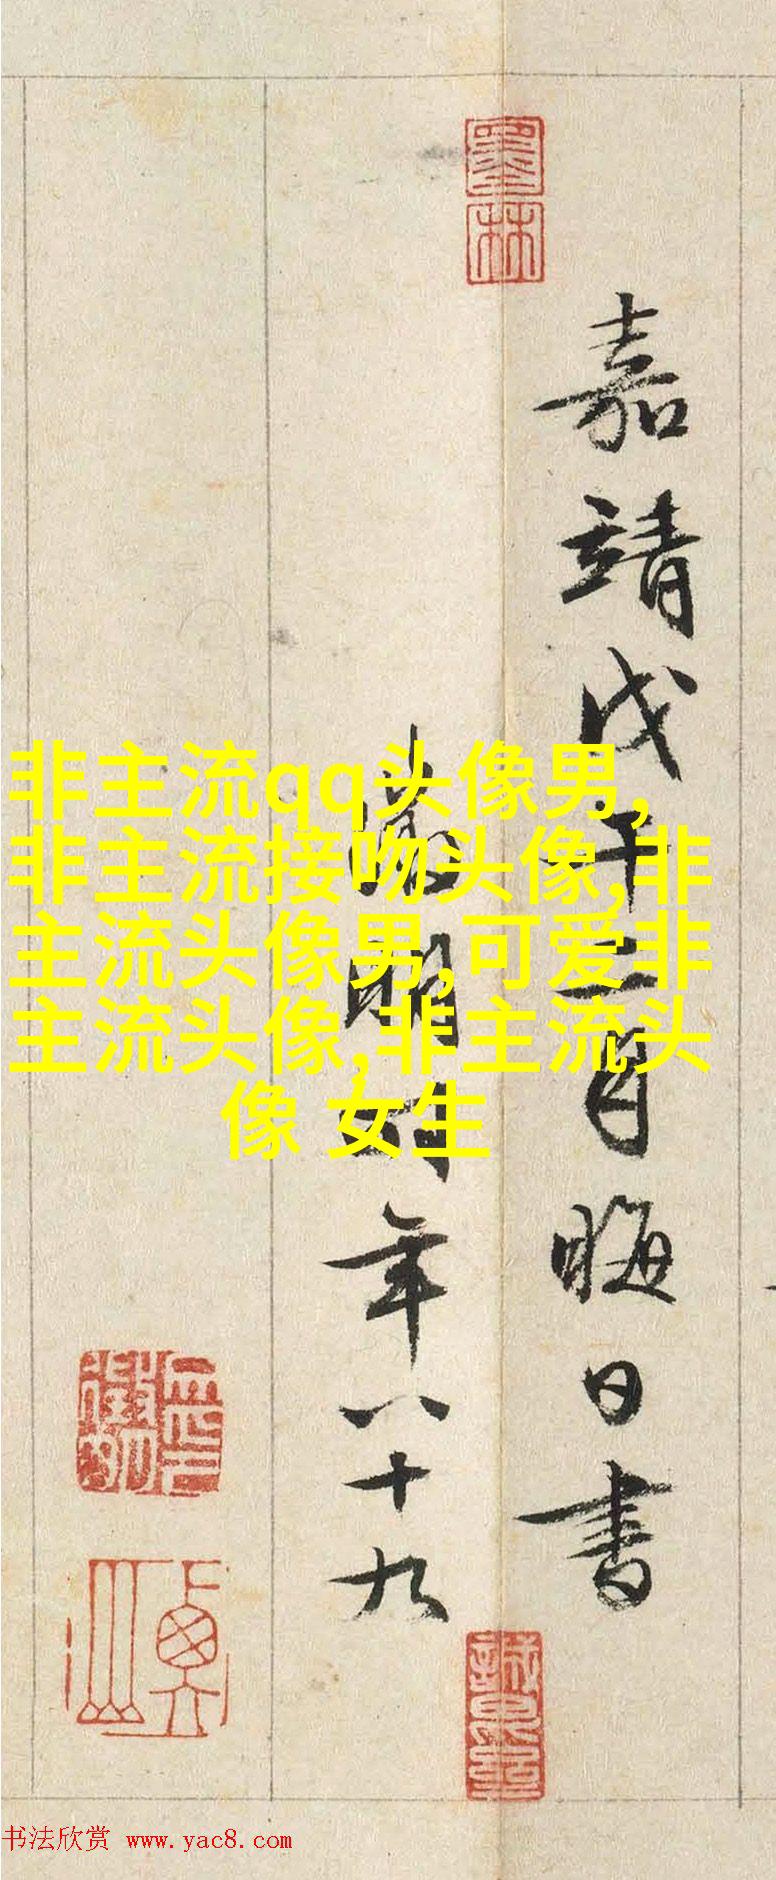 墨林
嘉靖戊午二月晦日書
徵明時年八十九
非主流qq头像男,
非主流接吻头像,非
主流头像男,可爱非
主流头像,非主流头
像 女生
衡山
书法欣赏 www.yac8.com